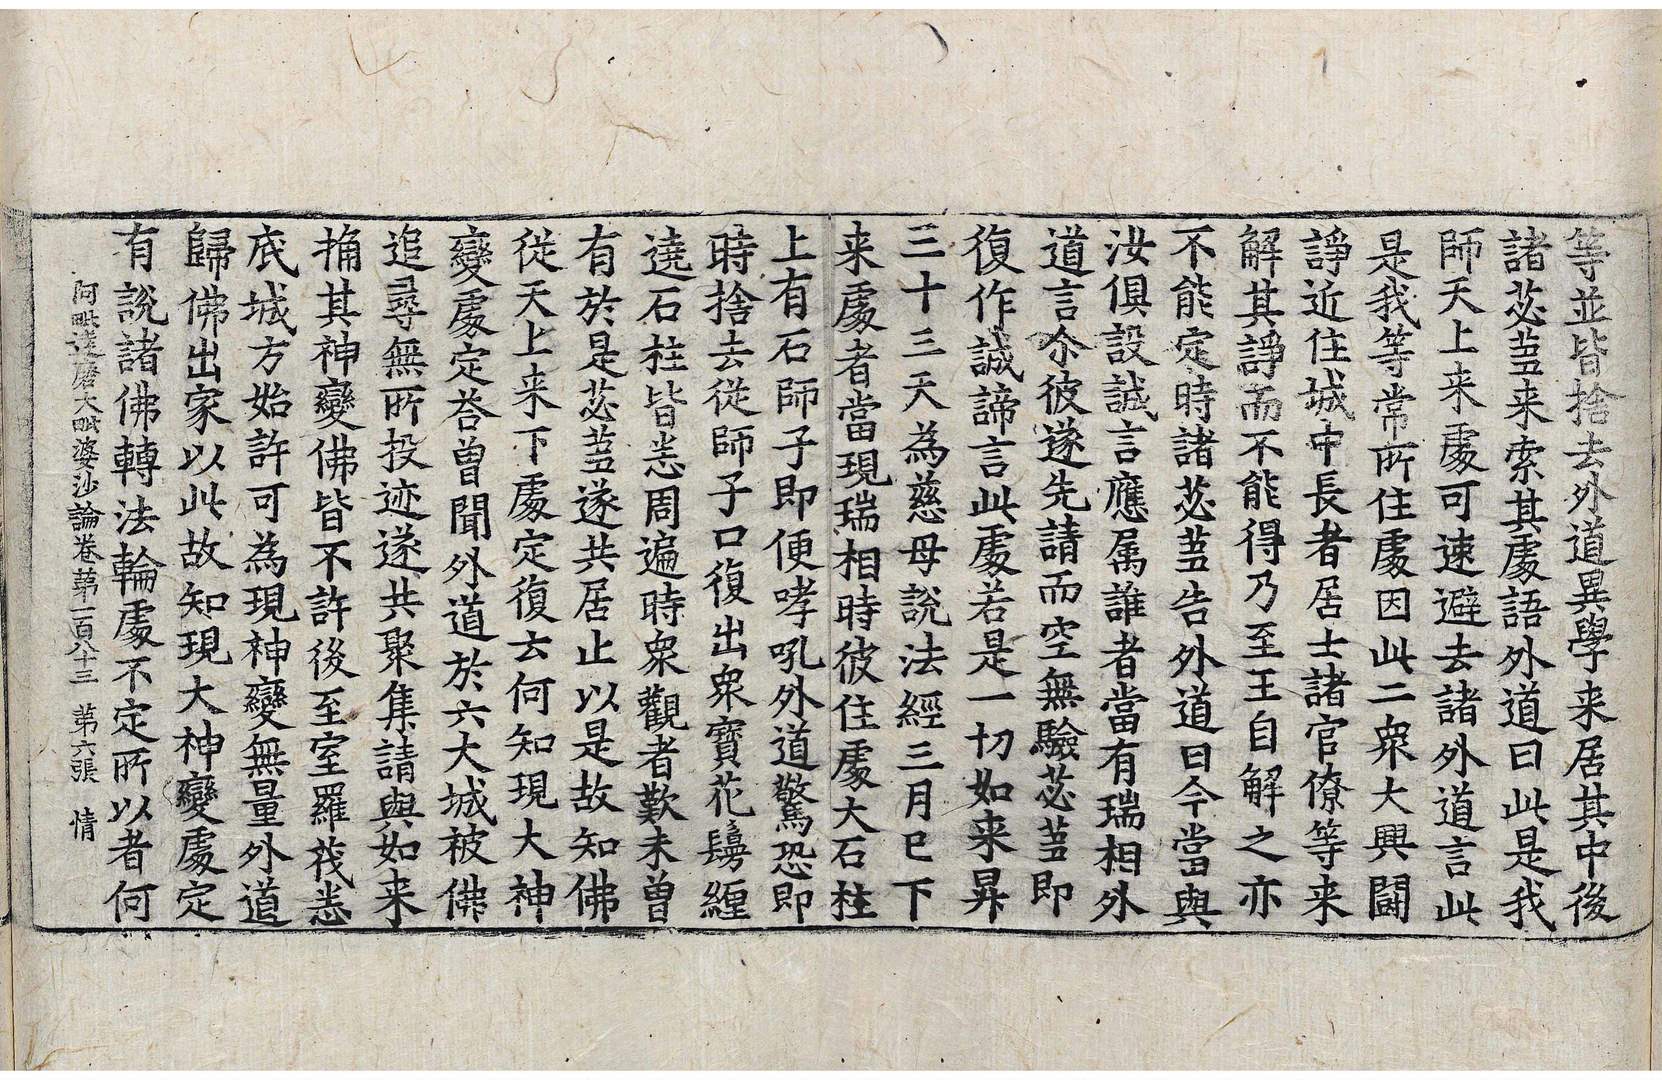 等並皆捨去外道異學来居其中後
諸苾蒭来索其處語外道曰此是我
師天上来處可速避去諸外道言此
是我等常所住處因此二衆大興鬪
諍近住城中長者居士諸官僚等来
解其諍而不能得乃至王自解之亦
不能定時諸苾蒭告外道曰今當與
汝俱設誠言應属誰者當有瑞相外
道言尒彼遂先請而空無驗苾蒭即
復作誠諦言此處若是一切如来昇
三十三天為慈母說法經三月已下
来處者當現瑞相時彼住處大石柱
上有石師子即便哮吼外道驚恐即
時捨去從師子口復出衆寶花鬘纒
遶石柱皆悉周遍時衆觀者歎未曾
有於是苾蒭遂共居止以是故知佛
從天上来下處定復去何知現大神
變處定荅曾聞外道於六大城被佛
追尋無所投迹遂共聚集請與如来
捔其神變佛皆不許後至室羅筏悉
底城方始許可為現神變無量外道
歸佛出家以此故知現大神變處定
有說諸佛轉法輪處不定所以者何
阿毗達磨大毗婆沙論卷第一百八十三 第六張 情